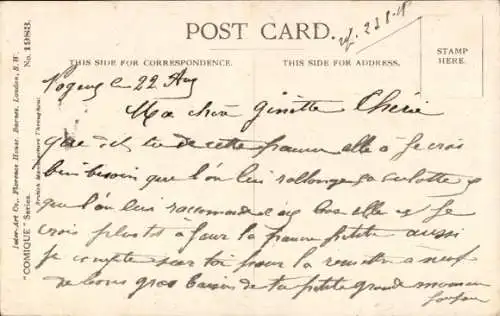 POST CARD.
ref. 23.8.18
THIS SIDE FOR CORRESPONDENCE.
THIS SIDE FOR ADDRESS.
STAMP
HERE.
Inter-Art Co., Florence House, Barnes, London, S.W.
"COMIQUE" Series.
British Manufacture Throughout.
No. 1983.
le 22 Aug
Ma chère Ginette Chérie
que dis tu de cette pauvre elle a je crois
bien besoin que l'on lui rallonge sa culotte &
que l'on lui raccommode bas elle & je
crois plutôt à la pauvre petite aussi
je compte sur toi pour la remettre à neuf
de bons gros baisers de ta petite grande maman